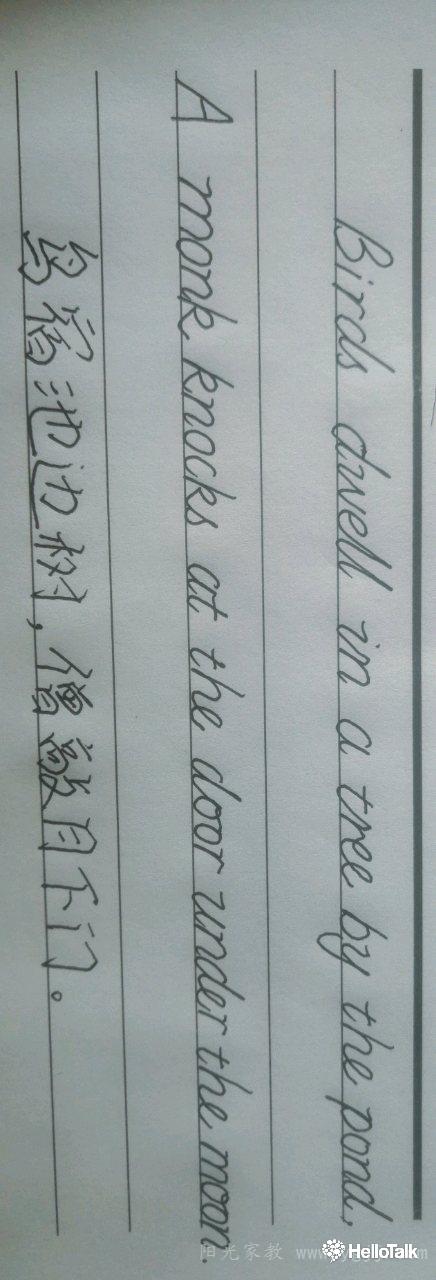 Birds dwell in a tree by the pond.
A monk knocks at the door under the moon.
鸟宿池边树,僧敲月下门。
阳光家教
HelloTalk